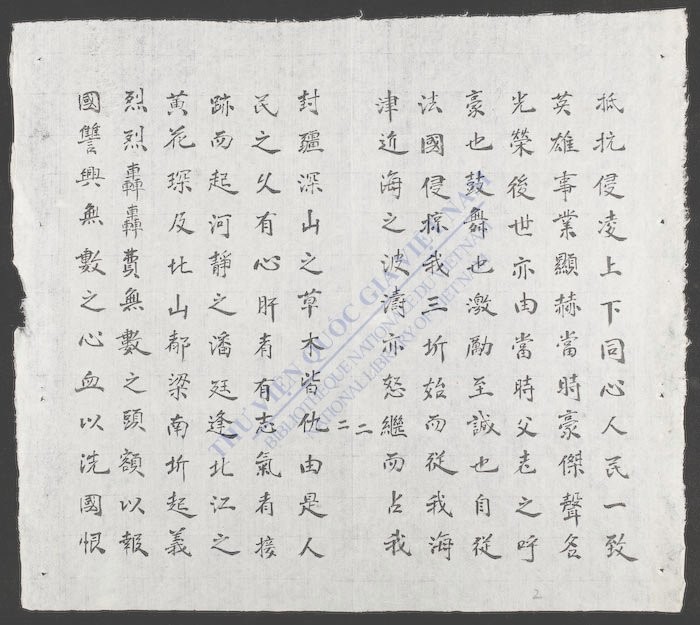 抵抗侵凌上下同心人民一致
英雄事業顯赫當時豪傑聲名
光榮後世亦由當時父老之呼
豪也鼓舞也激勵至誠也自從
法國侵掠我三圻始而從我海
津近海之波濤亦怒繼而占我
二二
封疆深山之草木皆仇由是人
民之久有心肝者有志氣者接
跡而起河靜之潘廷逢北江之
黃花琛及北山都梁南圻起義
烈烈轟轟費無數之頭額以報
國讐興無數之心血以洗國恨
THƯ VIỆN QUỐC GIA VIỆT NAM
BIBLIOTHEQUE NATIONALE DU VIETNAM
NATIONAL LIBRARY OF VIETNAM
2